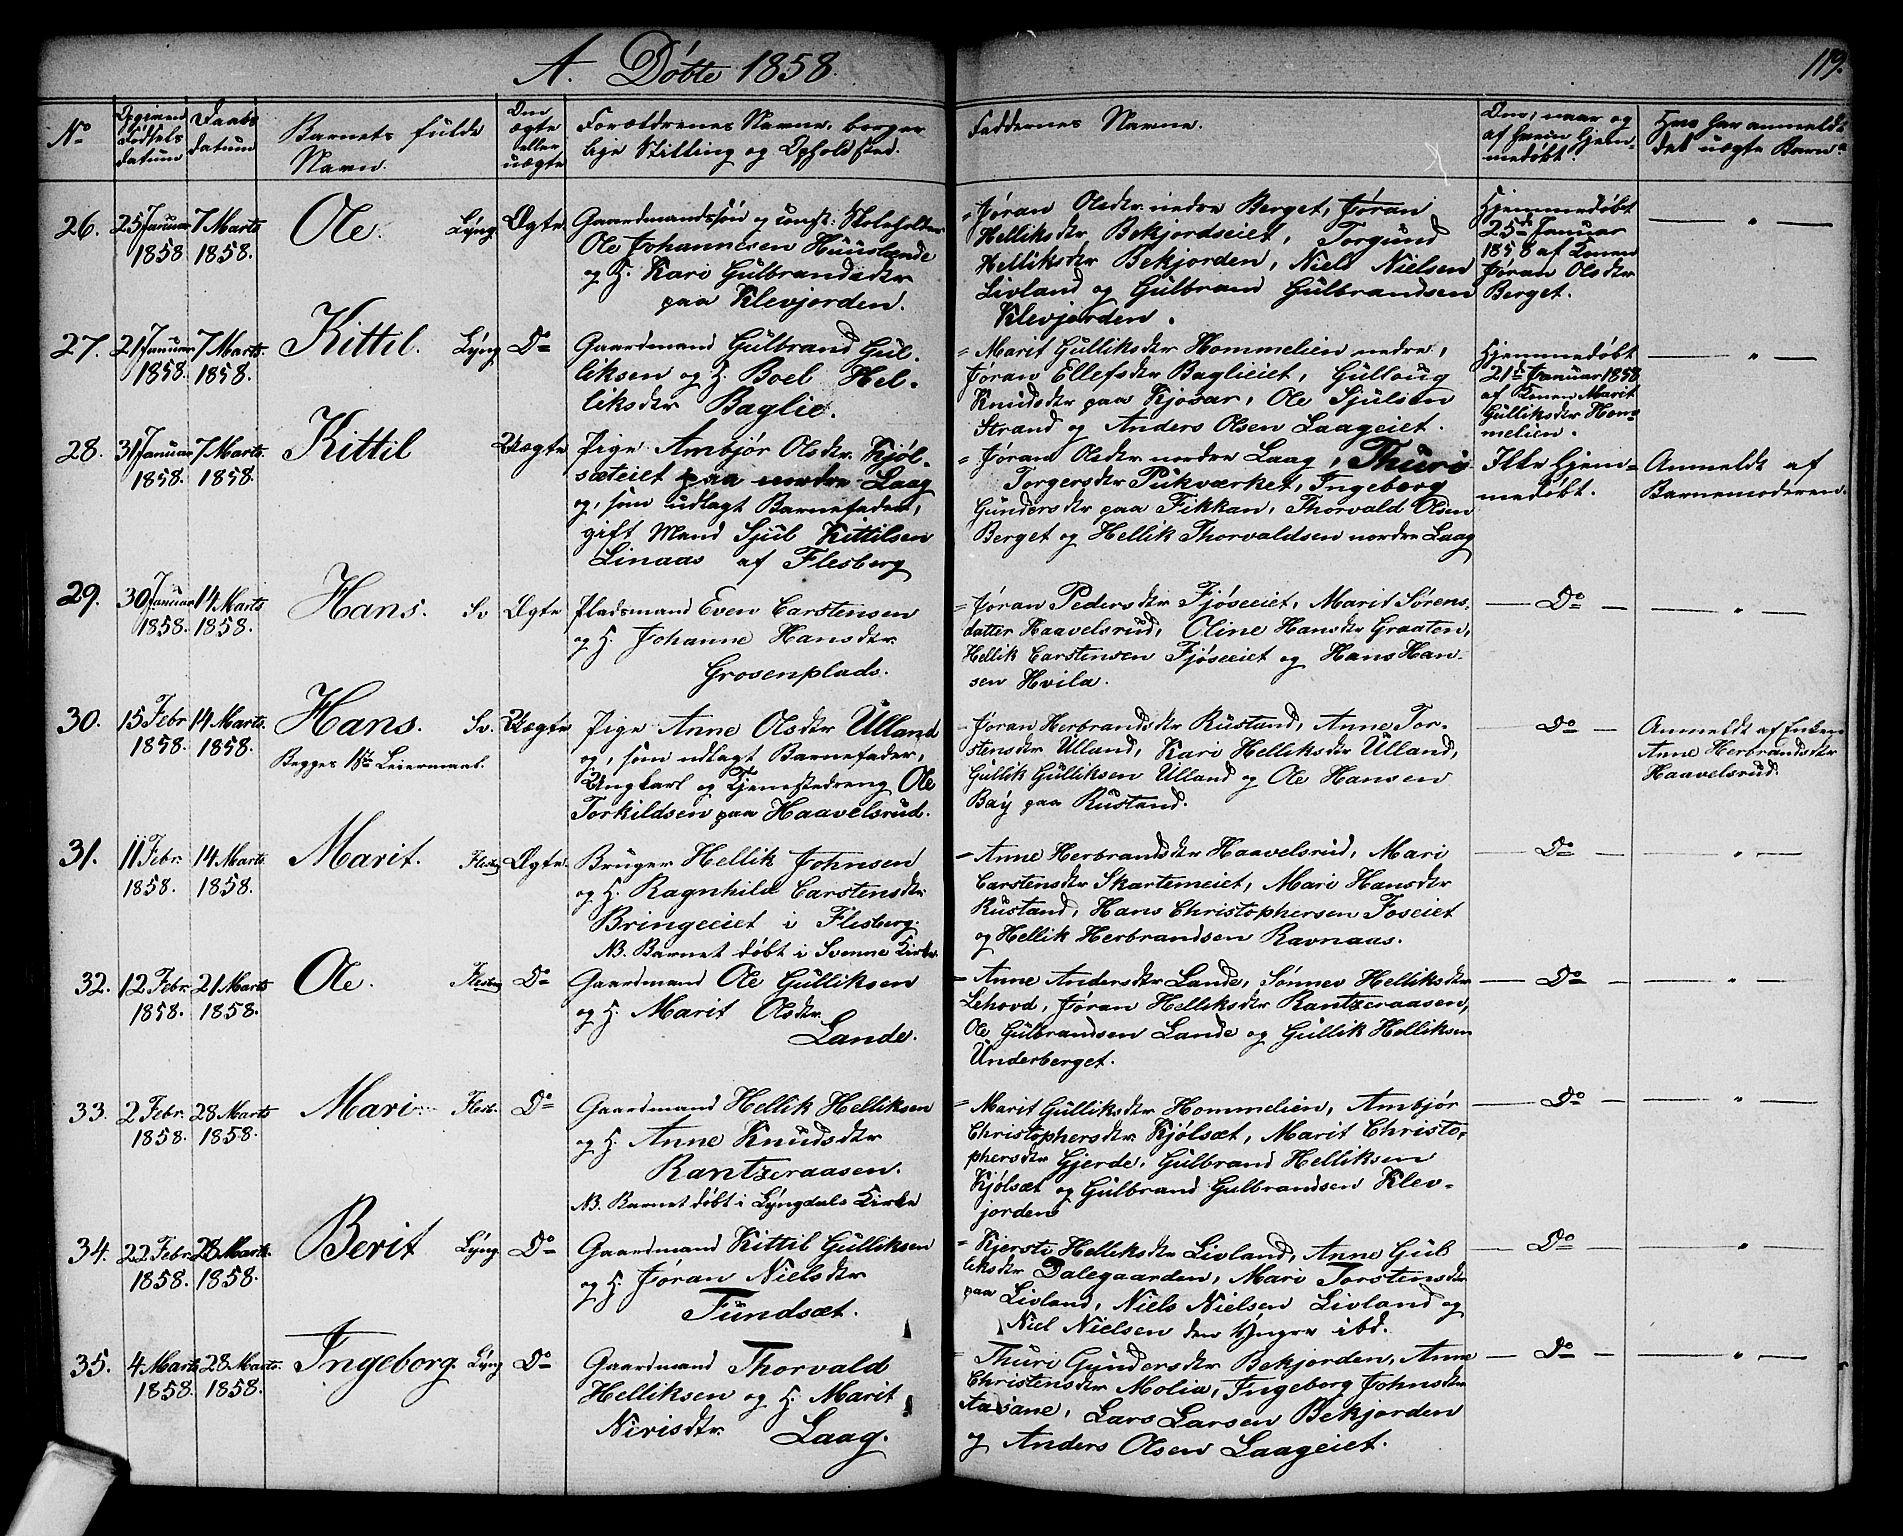 A. Døbte 1858.
119.
No
Opgiven Fødsels datum
Daabs datum
Barnets fulde Navn.
Om ægte eller uægte
Forældrenes Navne, borgerlige Stilling og Opholdssted.
Faddernes Navne.
Om, naar og af hvem hjemmedøbt.
Hvo har anmeldt det uægte Barn.
26.
25 Januar 1858
7 Marts 1858.
Ole.
Lyng.
Ægte.
Gaardmandssøn og const: Skoleholder
Ole Johannesen Huuslende
og H. Kari Gülbrandsdtr
paa Klevjorden.
= Jøran Olsdtr nedre Berget, Jøran
Helliksdtr Bekjordseiet, Torgund
Helliksdtr Bekjorden, Niels Nielsen
Livland og Gülbrand Gülbrandsen
Klevjorden.
Hjemmedøbt
25de Januar
1858 af Konen
Jøran Olsdtr
Berget.
27.
21 Januar 1858.
7 Marts. 1858.
Kittil.
Lyng
Do
Gaardmand Gülbrand Gül-
liksen og H. Boel Hel-
liksdtr Baglie.
= Marit Gülliksdtr Hommelien nedre,
Jøran Ellefsdtr Baglieiet, Gülloug
Knudsdtr paa Kjosar, Ole Sjulsen
Strand og Anders Olsen Laageiet.
Hjemmedøbt
21de Januar 1858
af Konen Marit
Gülliksdtr Hom-
melien.
28.
31 Januar 1858.
7 Marts. 1858.
Kittil
Uægte
Pige Ambjør Olsdtr Kjøl-
sæteiet paa nordre Laag
og, som udlagt Barnefader,
gift Mand Sjul Kittilsen
Linaas af Flesberg
= Jøran Olsdtr nordre Laag, Thuri
Torgersdtr Pukværket, Ingeborg
Gündersdtr paa Fikkan, Thorvald Olsen
Berget og Hellik Thorvaldsen nordre Laag
Ikke hjem-
medøbt.
Anmeldt af
Barnemoderen.
29.
30 Januar 1858.
14 Marts 1858.
Hans.
Sv
Ægte
Pladsmand Even Carstensen
og H. Johanne Hansdtr
Grosenplads.
= Jøran Pedersdtr Fjøseiet, Marit Sørens-
datter Haavelsrud, Oline Hansdtr Graaten,
Hellik Carstensen Fjøseiet og Hans Han-
sen Hvila.
Do
30.
15 Febr 1858.
14 Marts. 1858.
Hans.
Begges 1ste Leiermaal.
Sv.
Uægte
Pige Anne Olsdtr Ülland
og, som udlagt Barnefader,
Ungkarl og Tjenestedreng Ole
Torkildsen paa Haavelsrud.
- Jøran Herbrandsdtr Rüstand, Anne Tor-
stensdtr Ülland, Kari Helliksdtr Ülland,
Gullik Gülliksen Ülland og Ole Hansen
Bay paa Rustand.
Do
Anmeldt af Enken
Anne Herbrandsdtr
Haavelsrud.
31.
11 Febr. 1858.
14 Marts 1858.
Marit.
Flesbg
Ægte.
Bruger Hellik Johnsen
og H. Ragnhild Carstensdtr
Bringeeiet i Flesberg.
NB. Barnet døbt i Svenne Kirke.
= Anne Herbrandsdtr Haavelsrud, Mari
Carstensdtr Skartemeiet, Mari Hansdtr
Rustand, Hans Christophersen Foseiet
og Hellik Herbrandsen Ravnaas.
Do
32.
12 Febr. 1858.
21 Marts 1858.
Ole.
Flesbg
Do
Gaardmand Ole Gülliksen
og H. Marit Olsdtr
Lande.
= Anne Andersdtr Lande, Sønnev Helliksdtr
Lehovd, Jøran Helliksdtr Rantzeraasen,
Ole Gülbrandsen Lande og Güllik Helliksen
Ünderberget.
Do
33.
2 Febr. 1858.
28 Marts 1858.
Mari
Flesb.
Do
Gaardmand Hellik Helliksen
og H. Anne Knudsdtr
Rantzeraasen.
NB. Barnet døbt i Lyngdals Kirke
= Marit Gülliksdtr Hommelien, Ambjør
Christophersdtr Kjølsæt, Marit Christo-
phersdtr Gjerde, Gülbrand Helliksen
Kjølsæt og Gülbrand Gulbrandsen Klev-
jorden
Do
34.
22 Febr. 1858.
28 Marts. 1858.
Berit
Lyng.
Do
Gaardmand Kittil Gülliksen
og H. Jøran Nielsdtr
Fündsæt.
= Kjersti Helliksdtr Livland, Anne Gul
liksdtr Dalegaarden, Mari Torstensdtr
paa Livland, Niels Nielsen Livland og
Niel Nielsen den Yngre ibd.
Do
35.
4 Marts 1858.
28 Marts. 1858.
Ingeborg.
Lyng
Do
Gaardmand Thorvald
Helliksen og H. Marit
Nirisdtr Laag.
- Thuri Gyndersdtr Bekjorden, Anne
Christensdtr Molia, Ingeborg Johnsdtr
Aasane, Lars Larsen Bekjorden
og Anders Olsen Laageiet.
Do